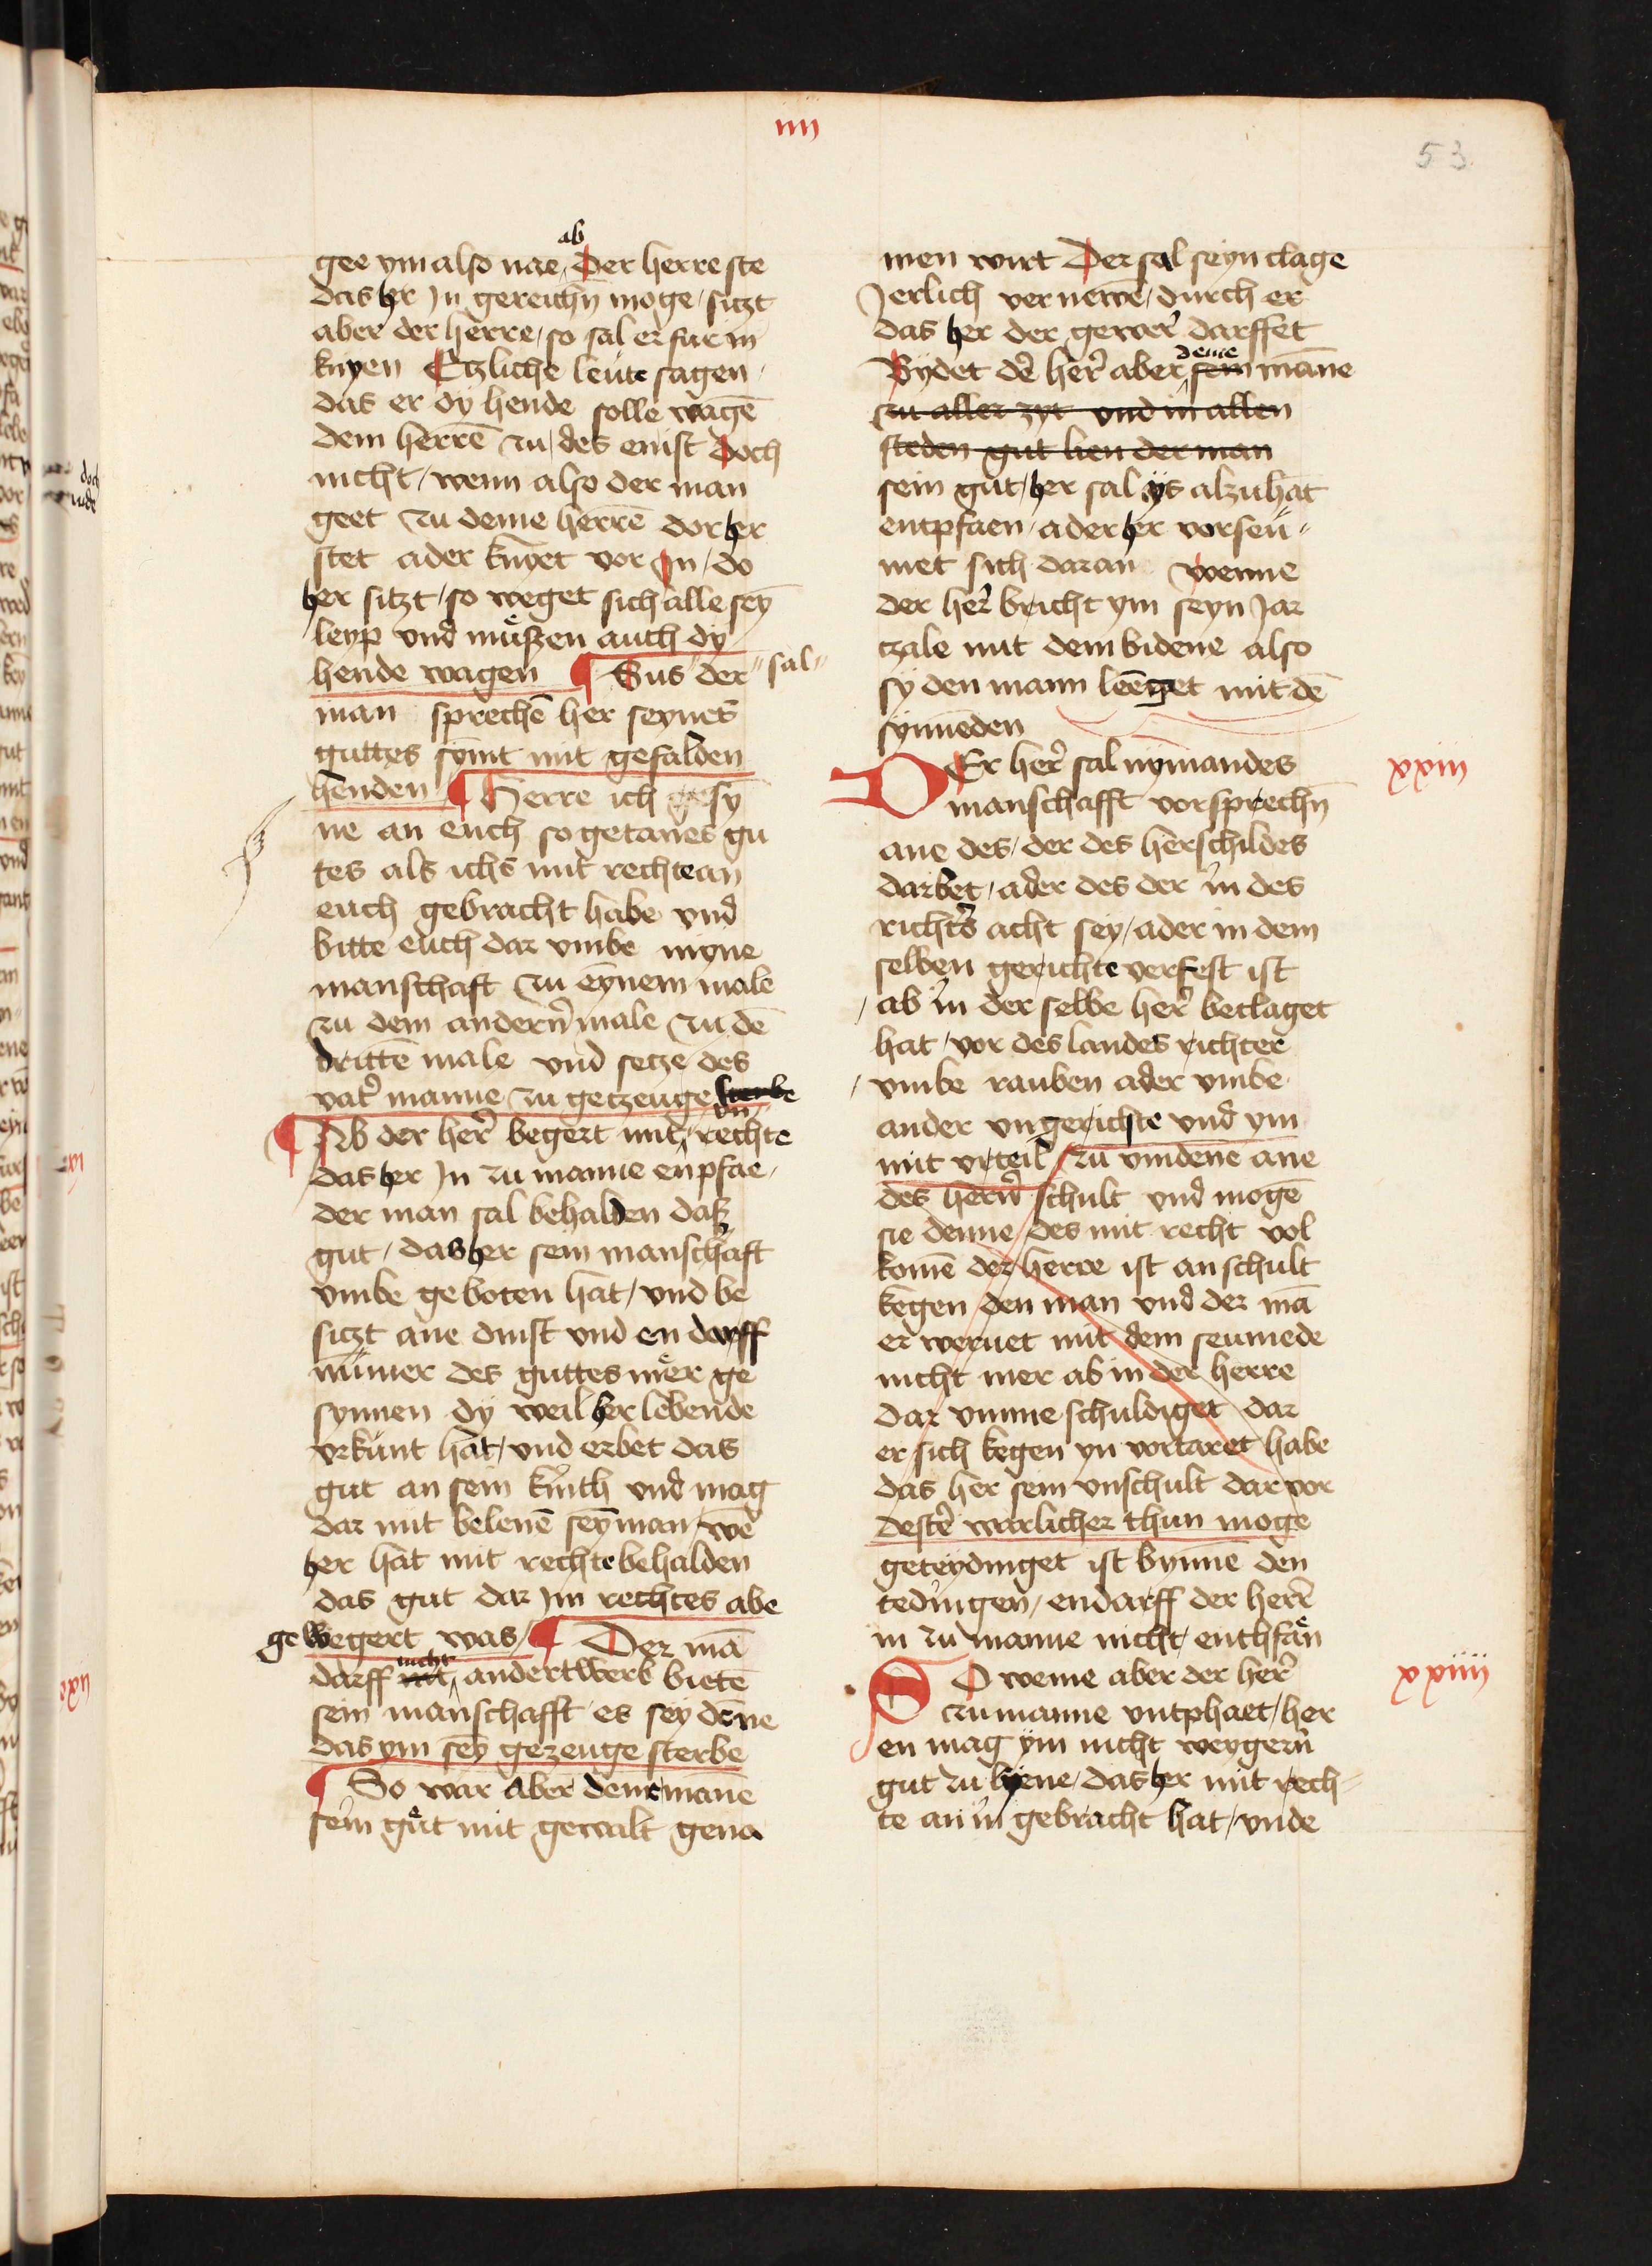 iiii
53
ab
gee ym also nae, Der herre ste
das her Jn gereichn̄ moge / sitzt
aber der herre / so sal er fur in
knyen Etzliche leute sagen /
das er dy hende solle wagē
dem herrē zu / des enist doch
nicht / wenn also der man
geet zu deme herrē dor her
stet ader knyet vor Jn / do
her sitzt / so weget sich alle seȳ
leyp vnd mußen auch dy
hende wagen ¶ Sus der sal
man sprechē her seynes
guttes sȳnt mit gefalden
henden ¶ Herre ich gesy
ne an euch so getanes gu
tes als ichs mit rechte an
euch gebracht habe vnd
bitte euch dar vmbe myne
manschaft zu eynem male
zu dem andern male zu dē
drittē male vnd setze des
vat' manne zu getzeuge
¶ Ab der her' begert mit vn rechte
das her Jn zu manne enpfae /
der man sal behalden daß
gut / das her sein manschaft
vmbe geboten hat / vnd be
sitzt ane dinst vnd en darff
nūmer des guttes mer ge
synnen dy weil her lebende
vrkunt hat / vnd erbet das
gut an sein kinth vnd mag
dar mit belenē seȳ man / wē
her hat mit rechte behalden
das gut dar Jm rechtes abe
gewegert was / ¶ Der mā
darff nicht andertwerb bietē
sein manschafft es sey dēne
das ym seȳ gezeuge sterbe
¶ So war aber deme māne
sein gůt mit gewalt geno
men wirt Der sal seyn clage
Jerlich vernewē / durch er
das her der gewer' darffet
Bydet de' her' aber deme sein māne
zu aller zyt vnd in allen
steden gut lien der man
sein gut / her sal ys alzuhāt
entpfaen / ader her vorseu
met sich daran wenne
der her' bricht ym seyn Jar
tzale mit dem bidene also
sy den mann lēnget mit dē
synneden
xxiii
Er her' sal nymandes
manschafft vorsprechn̄
ane des / der des herschildes
darbet / ader des der in des
richt's acht sey / ader in dem
selben gerichte verfest ist
/ ab in der selbe her' beclaget
hat / vor des landes richter
/ vmbe rauben ader vmbe
ander vngerichte vnd ym
mit vrteil zu vindene ane
des hern' schult vnd mogē
sie denne / des mit recht vol
komē der herre ist an schult
kegen den man vnd der mā
er wernet mit dem seumede
nicht mer ab in der herre
dar vmme schuldiget dar
er sich kegen yn vortaret habe
das her sein vnschult dar vor
deste' warlicher thun moge
geteydinget ist bynnē den
tedingen / endarff der herr'
in zu manne nicht / enthfan
xxiiii
So weme aber der her'
zu manne vntphaet / her
en mag ym nicht weygern
gut zu lyene / das her mit rech
te an in gebracht hat / vnde